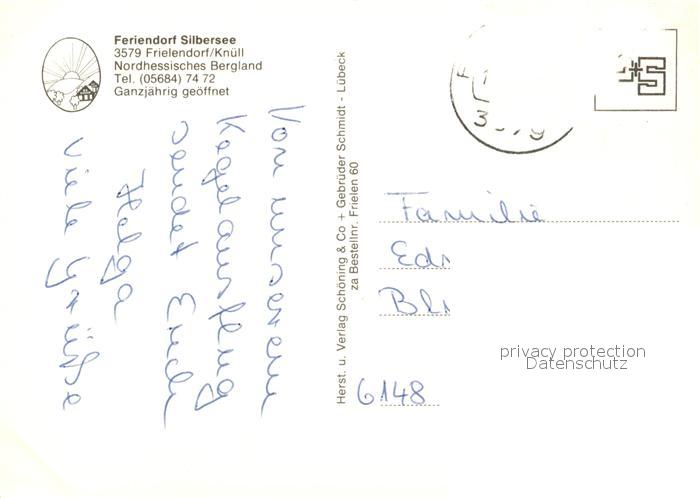 Feriendorf Silbersee
3579 Frielendorf/Knüll
Nordhessisches Bergland
Tel. (05684) 74 72
Ganzjährig geöffnet
Vom unserem
Kegelausflug
sendet Euch
viele Grüße
Helga
Herst. u. Verlag Schöning & Co + Gebrüder Schmidt - Lübeck
za Bestellnr. Frielen 60
Familie
6148
privacy protection
Datenschutz